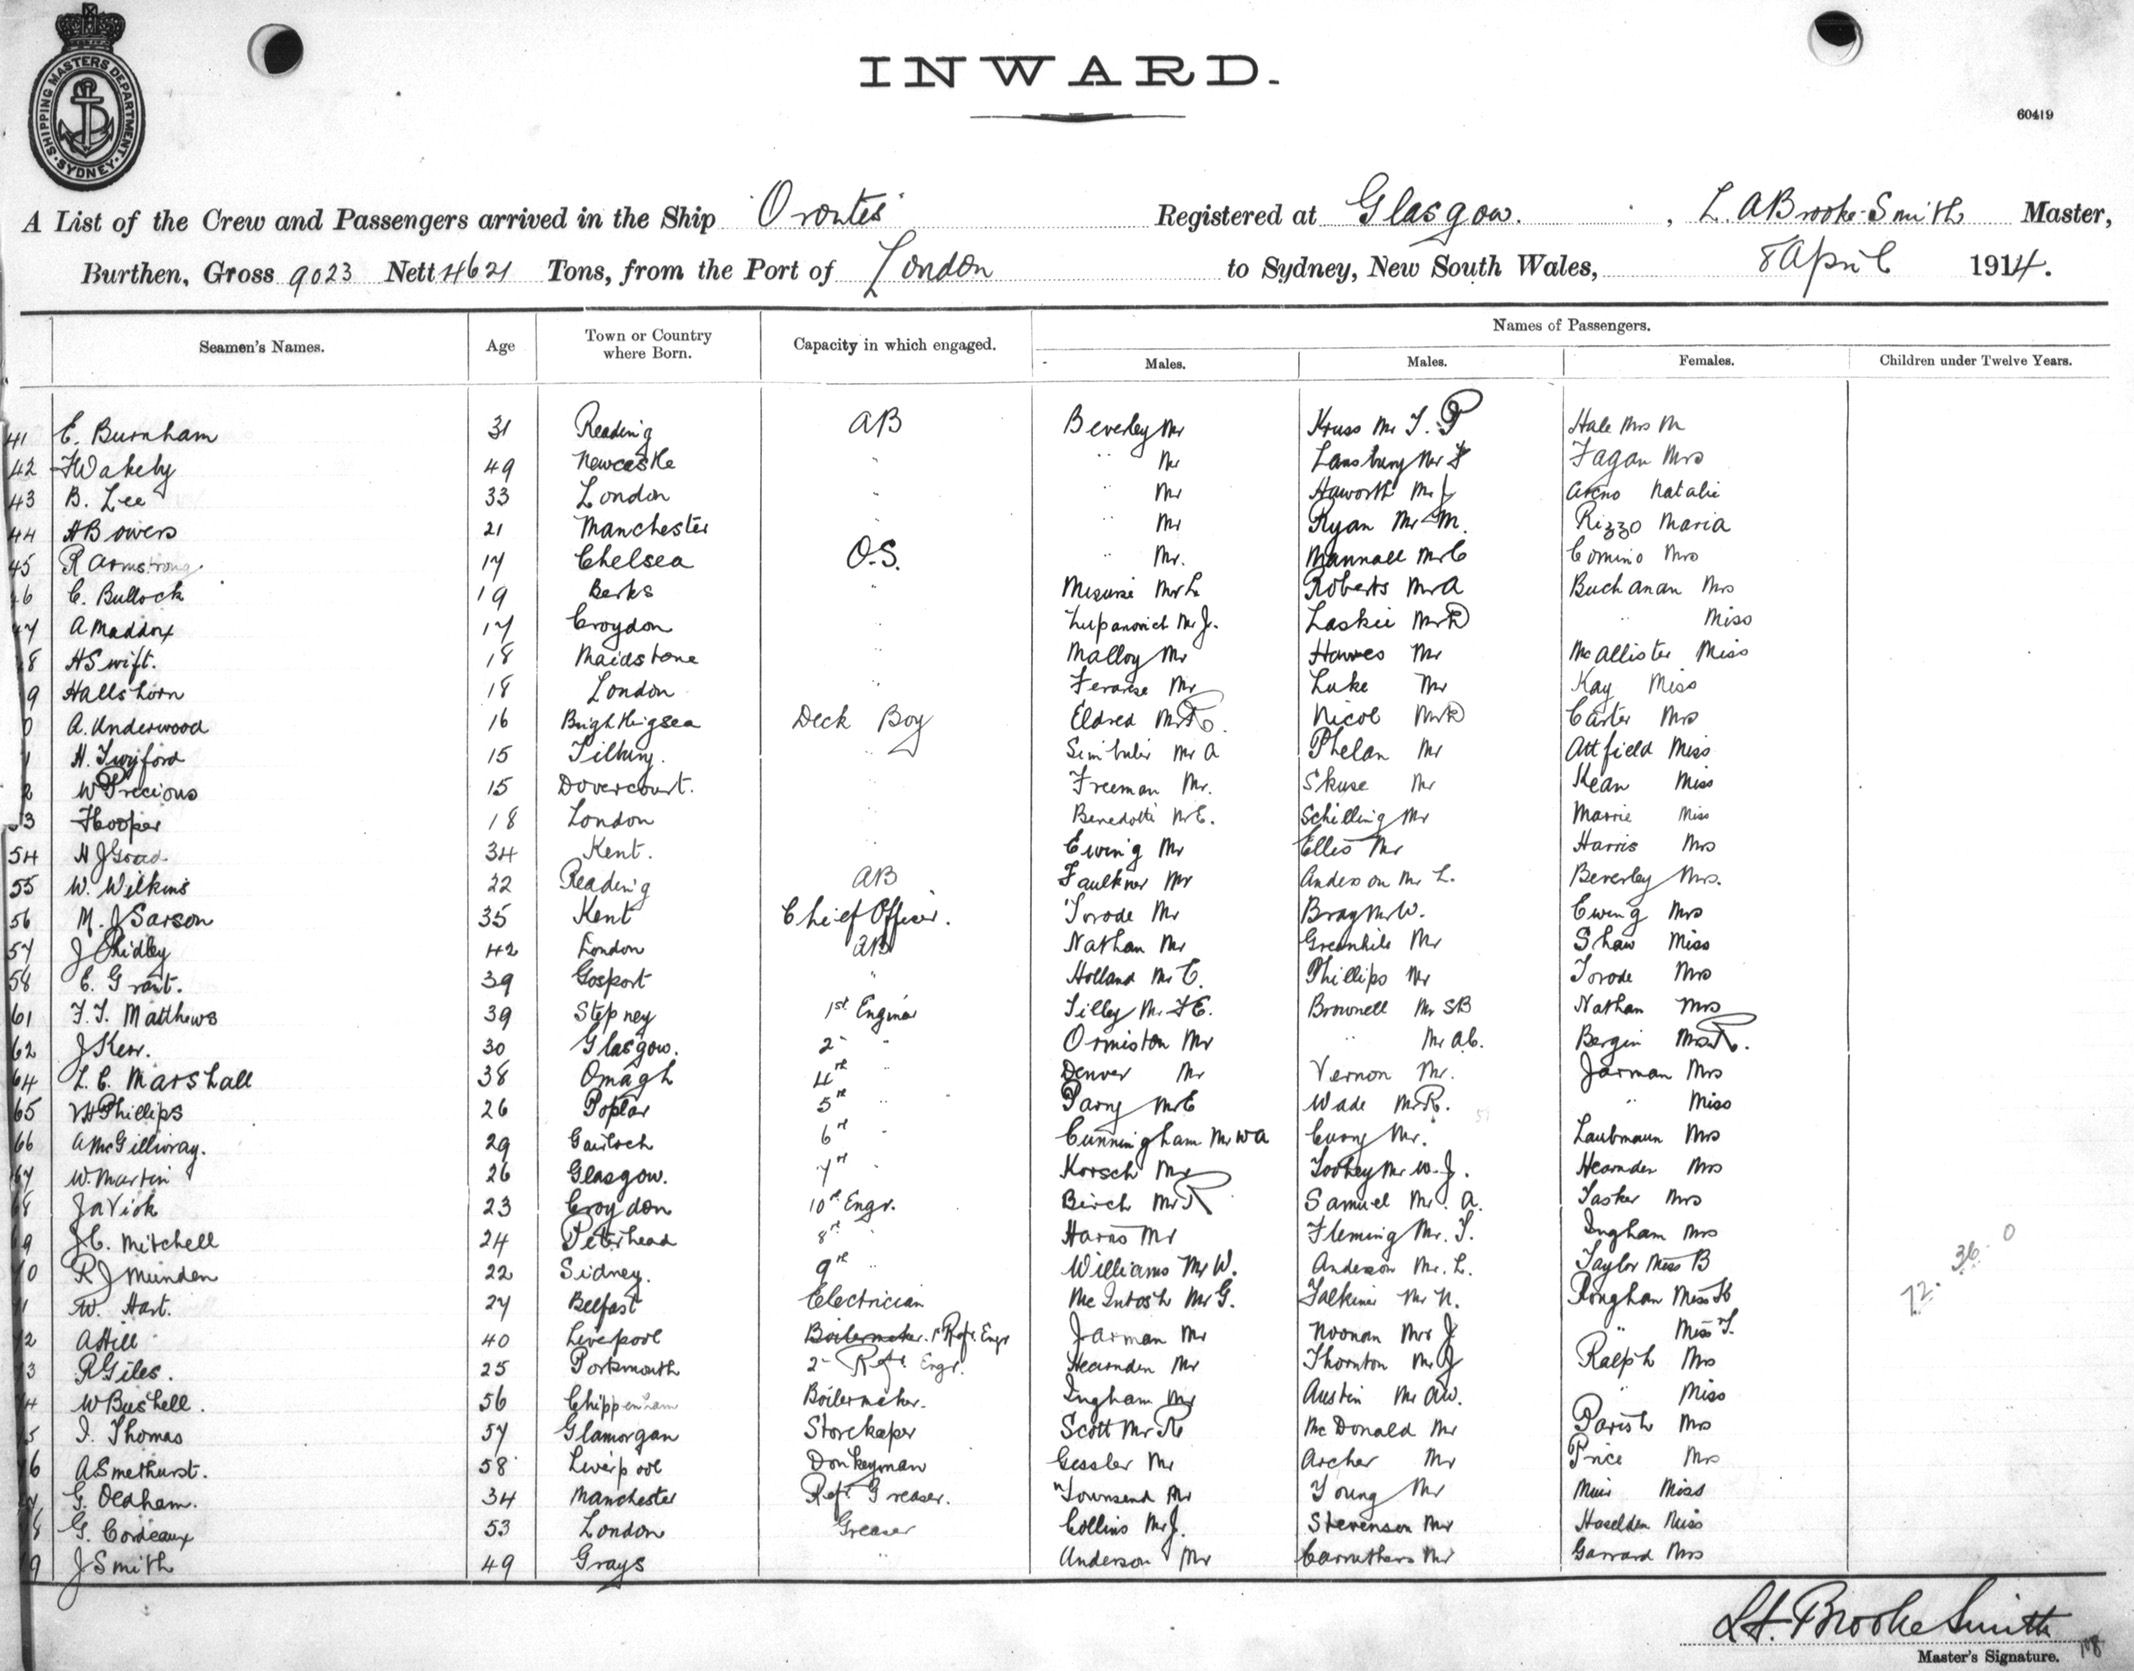 SHIPPING MASTERS DEPARTMENT · SYDNEY ·
INWARD.
60419
A List of the Crew and Passengers arrived in the Ship "Orontes" Registered at Glasgow. , L. A Brooke-Smith Master,
Burthen, Gross 9023 Nett 4621 Tons, from the Port of London to Sydney, New South Wales, 8 April 1914.
Seamen's Names. Age Town or Country where Born. Capacity in which engaged. Names of Passengers.
Males. Males. Females. Children under Twelve Years.
41 E. Burnham 31 Reading AB Beverley Mr Kruss Mr T. P Hale Mrs M
42 F Wakely 49 Newcastle " " Mr Lansbury Mr F Fagan Mrs
43 B. Lee 33 London " " Mr Haworth Mr J Natalie
44 A Bowers 21 Manchester " " Mr Ryan Mr M. Rizzo Maria
45 R Armstrong. 17 Chelsea O.S. " Mr. Mannall Mr C Comino Mrs
46 C. Bullock 19 Berks " Mr L Roberts Mr A Buchanan Mrs
47 A Maddox 17 Croydon " Mr J. Laskie Mr R " Miss
48 H Swift. 18 Maidstone " Malloy Mr Hawes Mr McAllister Miss
9 18 London " Mr Luke Mr Kay Miss
0 A. Underwood 16 Brightlingsea Deck Boy Eldred Mr R. Nicol Mr R Carter Mrs
1 H. Twyford 15 Tilbury. " Mr A Phelan Mr Attfield Miss
2 W Precious 15 Dovercourt. " Freeman Mr. Skuse Mr Kean Miss
53 F Cooper 18 London " Benedotti Mr E. Schilling Mr Marrie Miss
54 H J Goad. 34 Kent. " Ewing Mr Ellis Mr Harris Mrs
55 W. Wilkins 22 Reading AB Faulkner Mr Anderson Mr L. Beverley Mrs.
56 M. J Sarson 35 Kent Chief Officer. Torode Mr Bray Mr W. Ewing Mrs
57 J Chidley 42 London AB Nathan Mr Greenhile Mr Shaw Miss
58 E. Grant. 39 Gosport " Holland Mr C. Phillips Mr Torode Mrs
61 F. T. Matthews 39 Stepney 1st Engineer Tilley Mr F E. Brownell Mr S B Nathan Mrs
62 J Kerr. 30 Glasgow. 2 " Ormiston Mr " Mr A C. Bergin Mrs R.
64 L. C. Marshall 38 Omagh 4th " Denver Mr Vernon Mr. Jarman Mrs
65 W Phillips 26 Poplar 5th " Parry Mr E Wade Mr R. " Miss
66 A McGillivray. 29 Gairloch 6th " Cunningham Mr W A Curry Mr. Laubmaun Mrs
67 W. Martin 26 Glasgow. 7th " Korsch Mr Toohey Mr W. J. Hearnden Mrs
68 J A Vick 23 Croydon 10th Engr. Birch Mr R Samuel Mr. A. Tasker Mrs
69 J C. Mitchell 24 Peterhead 8th " Harris Mr Fleming Mr. T. Ingham Mrs
70 R J Munden 22 Sidney. 9th " Williams Mr W. Anderson Mr. L. Taylor Miss B
71 W. Hart. 27 Belfast Electrician McIntosh Mr G. Falkiner Mr N. Miss K
72.36.0
72 A Hill 40 Liverpool Boilermaker. 1st Refr. Engr Jarman Mr Noonan Mr J " Miss T.
73 R Giles. 25 Portsmouth 2 Refr. Engr. Hearnden Mr Thornton Mr J Ralph Mrs
74 W Bushell. 56 Chippenham Boilermaker. Ingham Mr Austin Mr A W. " Miss
75 I. Thomas 57 Glamorgan Storekeeper Scott Mr R McDonald Mr Parish Mrs
76 A Smethurst. 58 Liverpool Donkeyman Gessler Mr Archer Mr Price Mrs
77 G. Oldham. 34 Manchester Refr. Greaser. Townsend Mr Young Mr Muir Miss
78 G. Cordeaux 53 London Greaser Collins Mr J. Stevenson Mr Haselden Miss
79 J Smith 49 Grays " Anderson Mr Carruthers Mr Garrard Mrs
L. A. Brooke Smith
Master's Signature.